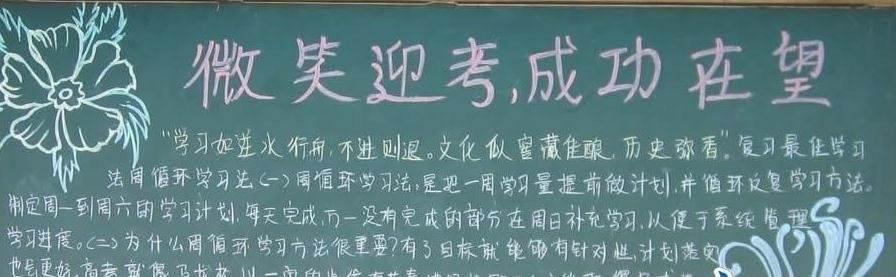 微笑迎考,成功在望
"学习如逆水行舟,不进则退。文化似窖藏佳酿,历史弥香"。复习最佳学习
法周循环学习法(一)周循环学习法,是把一周学习量提前做计划,并循环反复学习方法。
制定周一到周六的学习计划,每天完成,万一没有完成的部分在周日补充学习,以便于系统管理
学习进度。(二)为什么周循环学习方法很重要?有了目标就能够有针对性,计划落实
也是更好,高考就像